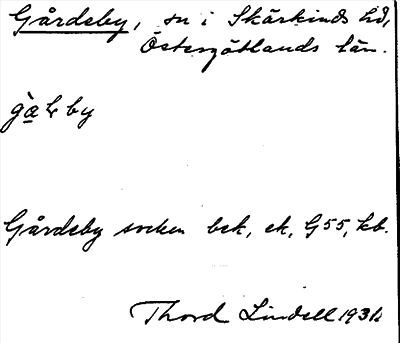 Gårdeby, sn i Skärkinds hd,
Östergötlands län.
by
Gårdeby socken bek, ek, G55, kb.
Thord Lindell 1931